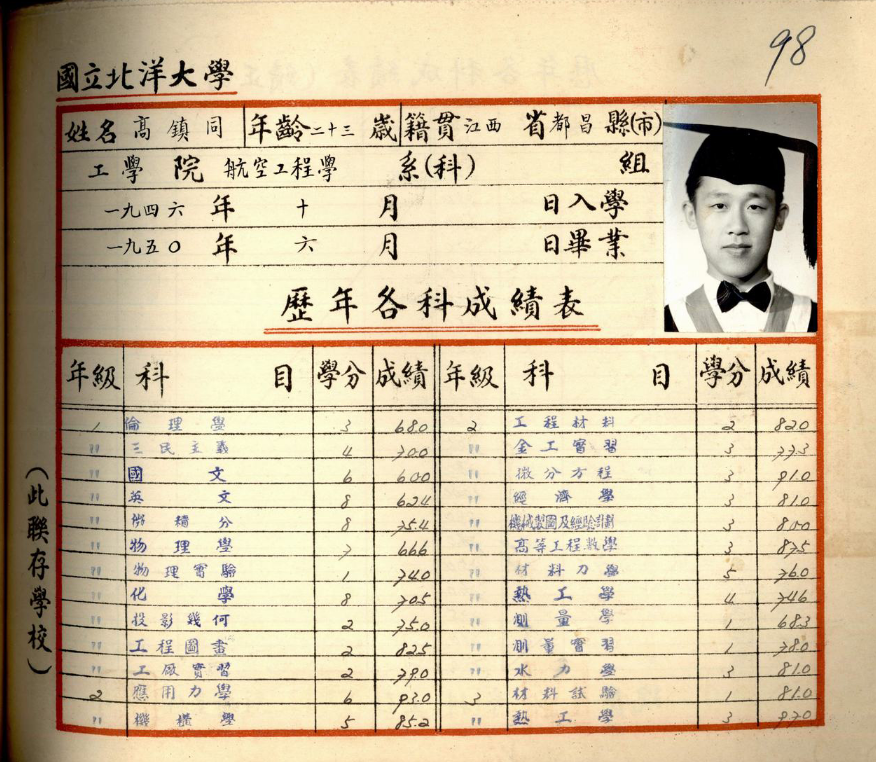 98
國立北洋大學
姓名 高鎮同 年齡 二十三 歲 籍貫 江西 省 都昌 縣(市)
工學 院 航空工程學 系(科) 組
一九四六 年 十 月 日入學
一九五〇 年 六 月 日畢業
歷年各科成績表
年級 科目 學分 成績 年級 科目 學分 成績
1 倫理學 3 68.0 2 工程材料 2 82.0
〃 三民主義 4 70.0 〃 金工實習 3 77.3
〃 國文 6 60.0 〃 微分方程 3 91.0
〃 英文 8 62.4 〃 經濟學 3 81.0
〃 微積分 8 75.4 〃 機械製圖及經驗計劃 3
〃 物理學 7 66.6 〃 高等工程數學 3 87.5
〃 物理實驗 1 74.0 〃 材料力學 5 76.0
〃 化學 8 70.5 〃 熱工學 4 74.6
〃 投影幾何 2 75.0 〃 測量學 1 68.3
〃 工程圖畫 2 82.5 〃 測量實習 1 78.0
〃 工廠實習 2 79.0 〃 水力學 3 81.0
2 應用力學 6 93.0 3 材料試驗 1 81.0
〃 機構學 5 85.2 〃 熱工學 3
(此聯存學校)